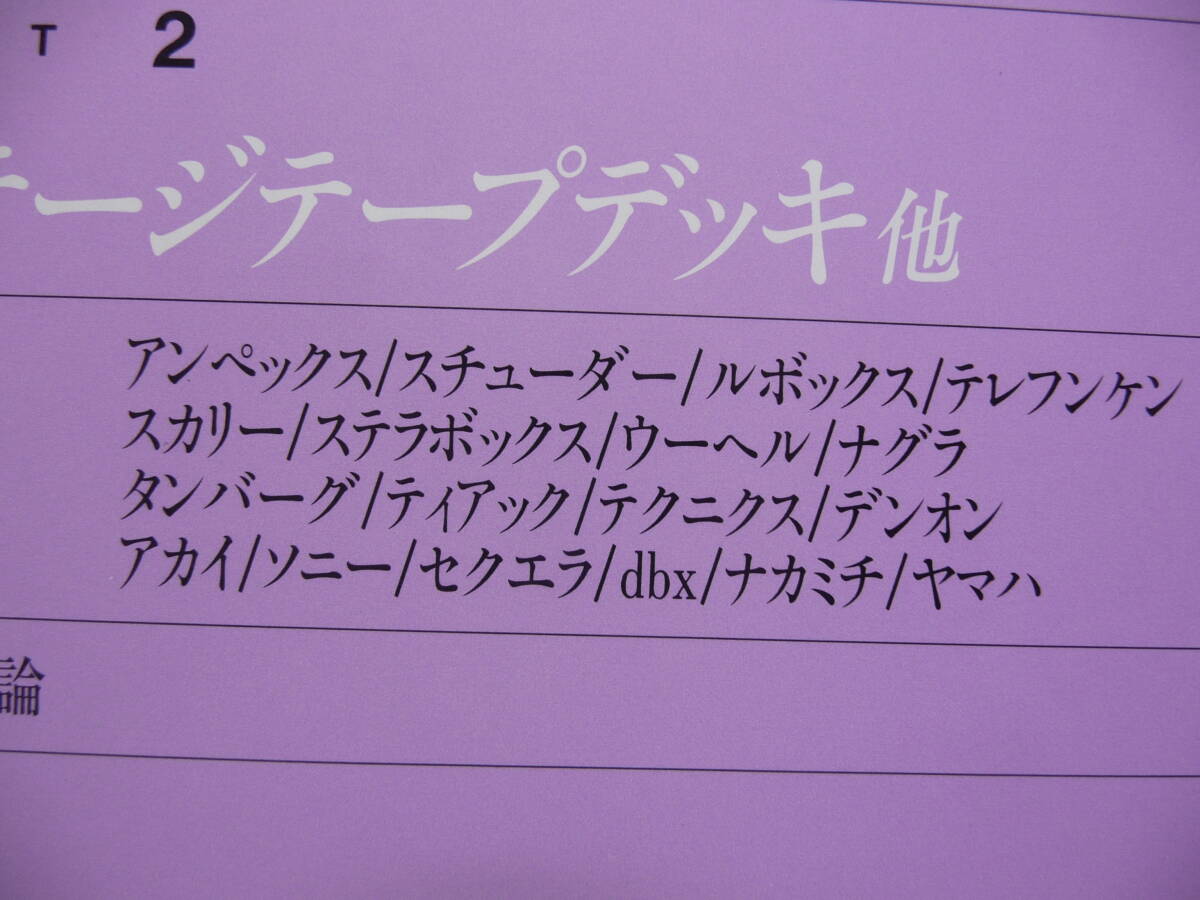 T 2
テージテープデッキ他
アンペックス/スチューダー/ルボックス/テレフンケン
スカリー/ステラボックス/ウーヘル/ナグラ
タンバーグ/ティアック/テクニクス/デンオン
アカイ/ソニー/セクエラ/dbx/ナカミチ/ヤマハ
論